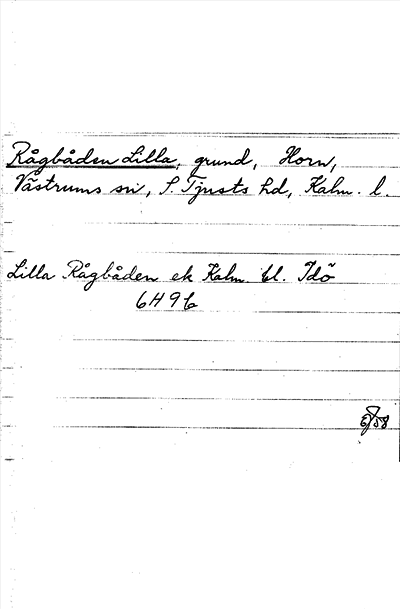 Rågbåden Lilla, grund, Horn,
Västrums sn, S. Tjusts hd, Kalm. l.
Lilla Rågbåden ek Kalm. bl. Idö
6H9b